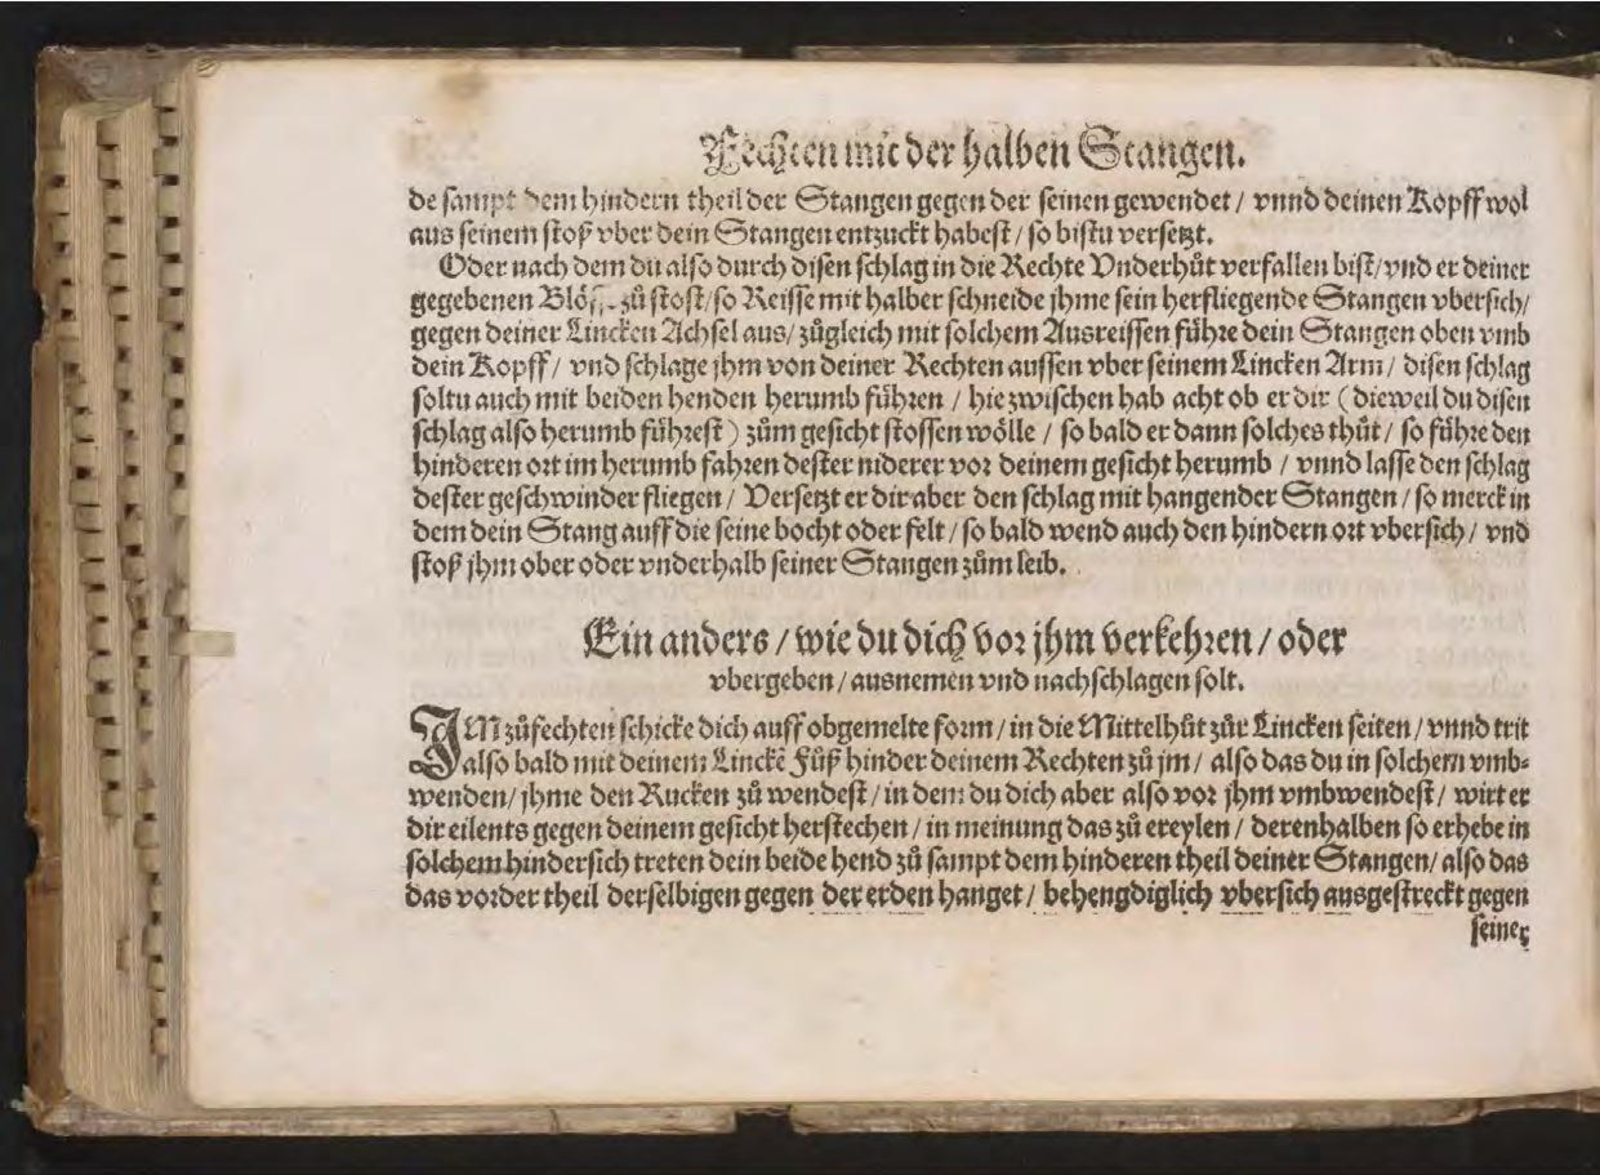 Fechten mit der halben Stangen.
de sampt dem hindern theil der Stangen gegen der seinen gewendet / vnnd deinen Kopff wol
aus seinem stoß vber dein Stangen entzuckt habest / so bistu versetzt.
Oder nach dem du also durch disen schlag in die Rechte Vnderhůt verfallen bist / vnd er deiner
gegebenen zů stost / so Reisse mit halber schneide jhme sein herfliegende Stangen vbersich /
gegen deiner Lincken Achsel aus / zůgleich mit solchem Ausreissen führe dein Stangen oben vmb
dein Kopff / vnd schlage jhm von deiner Rechten aussen vber seinem Lincken Arm / disen schlag
soltu auch mit beiden henden herumb führen / hie zwischen hab acht ob er dir ( dieweil du disen
schlag also herumb führest ) zům gesicht stossen wölle / so bald er dann solches thůt / so führe den
hinderen ort im herumb fahren dester niderer vor deinem gesicht herumb / vnnd lasse den schlag
dester geschwinder fliegen / Versetzt er dir aber den schlag mit hangender Stangen / so merck in
dem dein Stang auff die seine bocht oder felt / so bald wend auch den hindern ort vbersich / vnd
stoß jhm ober oder vnderhalb seiner Stangen zům leib.
Ein anders / wie du dich vor jhm verkehren / oder
vbergeben / ausnemen vnd nachschlagen solt.
IM zůfechten schicke dich auff obgemelte form / in die Mittelhůt zůr Lincken seiten / vnnd trit
also bald mit deinem Linckē Fůß hinder deinem Rechten zů jm / also das du in solchem vmb⸗
wenden / jhme den Rucken zů wendest / in dem du dich aber also vor jhm vmbwendest / wirt er
dir eilents gegen deinem gesicht herstechen / in meinung das zů ereylen / derenhalben so erhebe in
solchem hindersich treten dein beide hend zů sampt dem hinderen theil deiner Stangen / also das
das vorder theil derselbigen gegen der erden hanget / behengdiglich vbersich ausgestreckt gegen
seiner